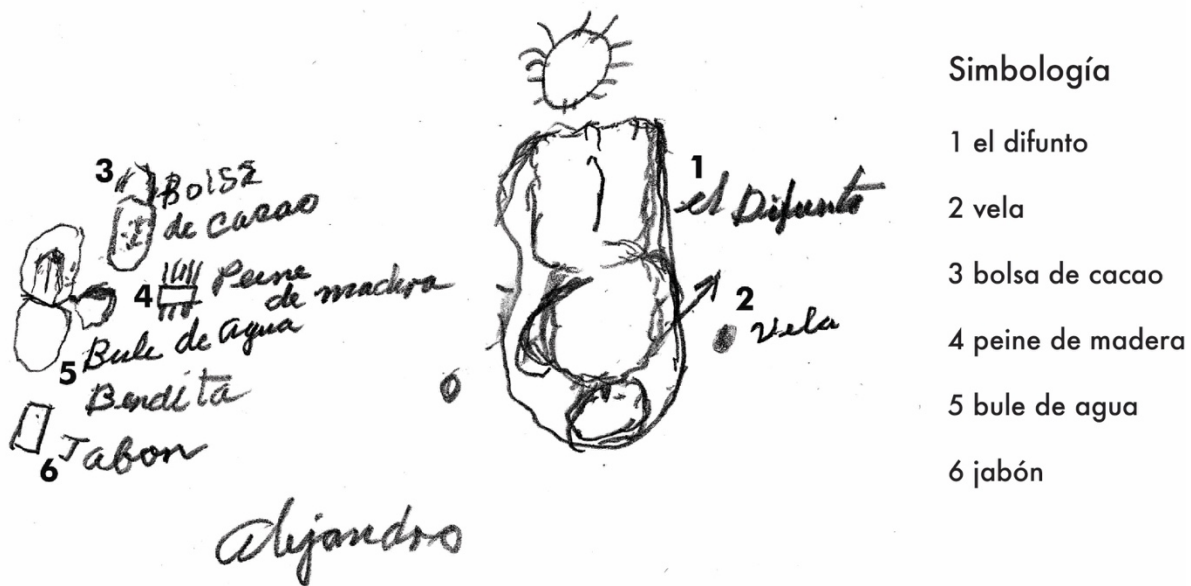 3 Bolsa
de cacao
4 Peine
de madera
5 Bule de agua
Bendita
6 Jabon
1 el Difunto
2 Vela
Alejandro
Simbología
1 el difunto
2 vela
3 bolsa de cacao
4 peine de madera
5 bule de agua
6 jabón